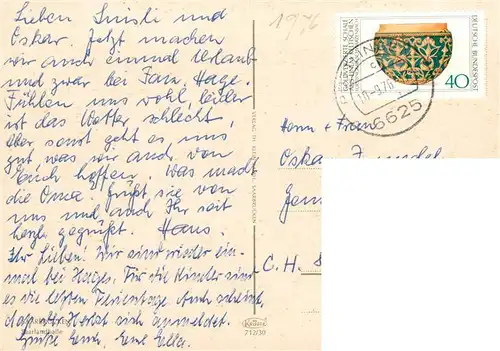 Lieben Suisli und
Oskar. Jetzt machen
wir auch einmal Urlaub
und zwar bei Fam. Hage.
Fühlen uns wohl, leider
ist das Wetter schlecht,
aber sonst geht es uns
gut was wir auch von
Euch hoffen. Was macht
die Oma. Grüßt sie von
uns und auch Ihr seit
herzl. gegrüßt. Hans.
Ihr Lieben! Wir sind wieder ein-
mal bei Hages. Für die Kinder sind
es die letzten Ferientage. Auch scheint
der Herbst sich anmeldet.
Grüße Euch, Eure Ella.
1976
DEUTSCHE BUNDESPOST
40
6625
Herrn + Frau
Oskar
C.H.
712/30